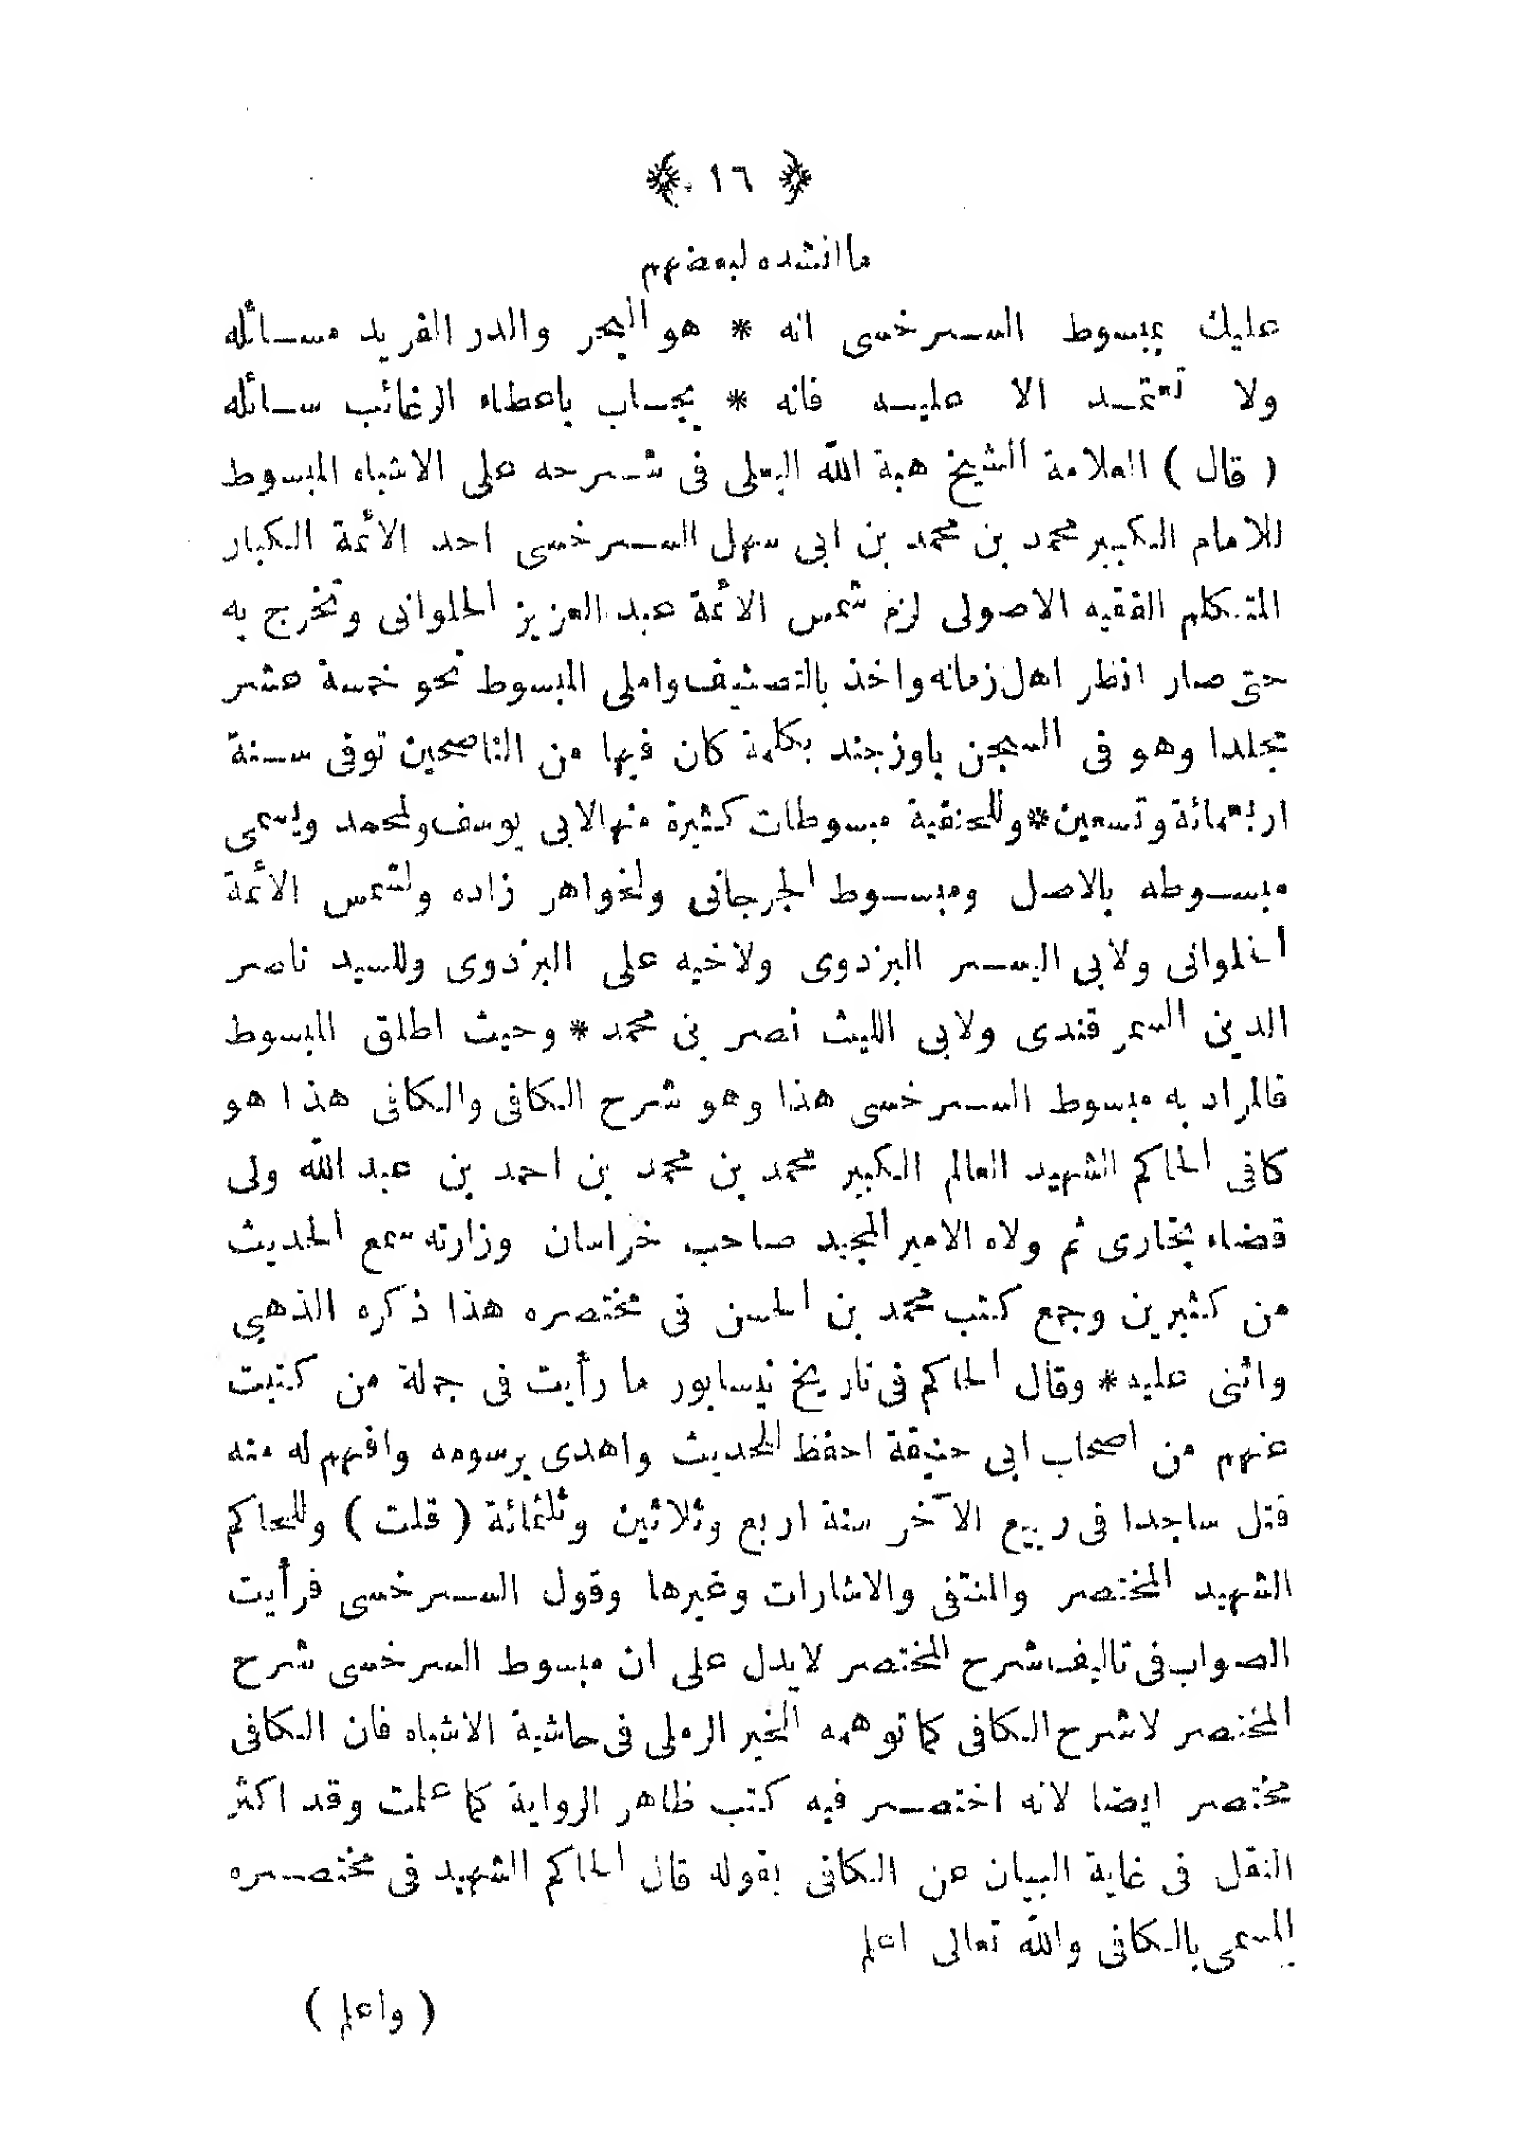 ﴿ ١٦ ﴾
ما انشده لبعضهم
عليك بمبسوط السرخسى انه * هو البحر والدر الفريد مسائله
ولا تعتمد الا عليه فانه * يجاب باعطاء الرغائب سائله
( قال ) العلامة الشيخ هبة الله البعلى فى شرحه على الاشباه المبسوط
للامام الكبير محمد بن محمد بن ابى سهل السرخسى احد الائمة الكبار
المتكلم الفقيه الاصولى لزم شمس الائمة عبد العزيز الحلوانى وتخرج به
حتى صار انظر اهل زمانه واخذ بالتصنيف واملى المبسوط نحو خمسة عشر
مجلدا وهو فى السجن باوزجند بكلمة كان فيها من الناصحين توفى سنة
اربعمائة وتسعين * وللحنفية مبسوطات كثيرة منها لابى يوسف ولمحمد ويسمى
مبسوطه بالاصل ومبسوط الجرجانى ولخواهر زاده ولشمس الائمة
الحلوانى ولابى اليسر البزدوى ولاخيه على البزدوى وللسيد ناصر
الدين السمرقندى ولابى الليث نصر بن محمد * وحيث اطلق المبسوط
فالمراد به مبسوط السرخسى هذا وهو شرح الكافى والكافى هذا هو
كافى الحاكم الشهيد العالم الكبير محمد بن محمد بن احمد بن عبد الله ولى
قضاء بخارى ثم ولاه الامير المجيد صاحب خراسان وزارته سمع الحديث
من كثيرين وجمع كتب محمد بن الحسن فى مختصره هذا ذكره الذهبي
واثنى عليه * وقال الحاكم فى تاريخ نيسابور ما رأيت فى جملة من كتبت
عنهم من اصحاب ابى حنيفة احفظ للحديث واهدى برسومه وافهم له منه
قتل ساجدا فى ربيع الآخر سنة اربع وثلاثين وثلثمائة ( قلت ) وللحاكم
الشهيد المختصر والمنتقى والاشارات وغيرها وقول السرخسى فرأيت
الصواب فى تاليف شرح المختصر لا يدل على ان مبسوط السرخسى شرح
المختصر لا شرح الكافى كما توهمه الخير الرملى فى حاشية الاشباه فان الكافى
مختصر ايضا لانه اختصر فيه كتب ظاهر الرواية كما علمت وقد اكثر
النقل فى غاية البيان عن الكافى بقوله قال الحاكم الشهيد فى مختصره
المسمى بالكافى والله تعالى اعلم
( واعلم )